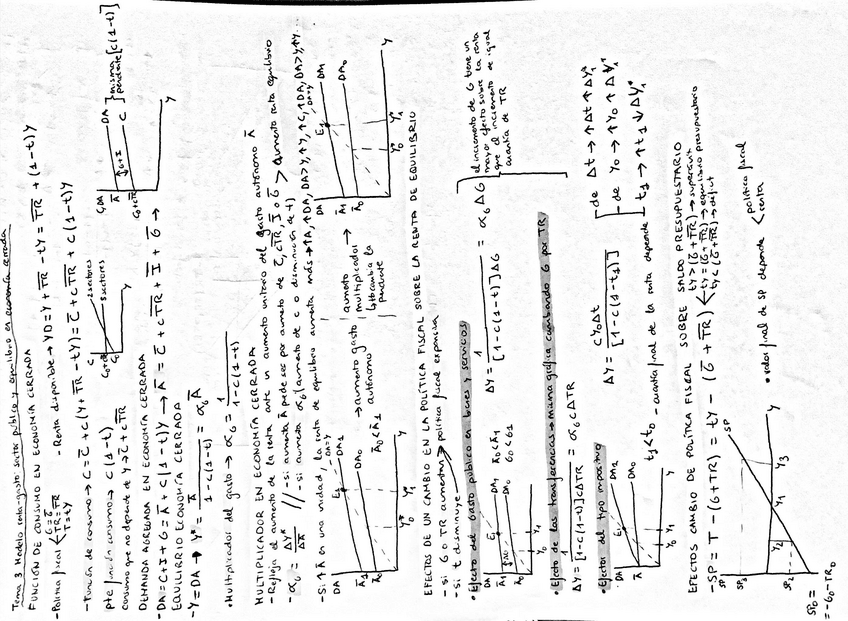 Tema 3. Modelo renta-gasto: sector público y equilibrio en economía cerrada
FUNCIÓN DE CONSUMO EN ECONOMÍA CERRADA
-Política fiscal G=G̅ TR=T̅R̅ T=tY
- Renta disponible → YD=Y+T̅R̅ -tY= T̅R̅ +(1-t)Y
-Función de consumo → C=C̅+c(Y+T̅R̅-tY)=C̅+cT̅R̅+c(1-t)Y
pte función consumo → c(1-t)
consumo que no depende de Y → C̅+cT̅R̅
C
2 sectores
3 sectores
Y
C,DA
A̅
DA
G+I
C
misma pendiente [c(1-t)]
Y
DEMANDA AGREGADA EN ECONOMÍA CERRADA
-DA=C+I+G=A̅+c(1-t)Y → A̅=C̅+cT̅R̅+I̅+G̅ →
EQUILIBRIO ECONOMÍA CERRADA
-Y=DA → Y*= A̅ / 1-c(1-t) = α_G A̅
•Multiplicador del gasto → α_G = 1 / 1-c(1-t)
MULTIPLICADOR EN ECONOMÍA CERRADA
- Refleja el aumento de la renta ante un aumento unitario del gasto autónomo A̅
- α_G = ΔY* / ΔA̅ // -si aumenta A̅ puede ser por aumento de C̅, cT̅R̅, I̅ o G̅ > aumento renta equilibrio
-si aumenta α_G (aumento de c o disminución de t)
-Si ↑A̅ en una unidad, la renta de equilibrio aumenta más → ↑A, ↑DA, DA>Y, ↑Y, ↑C, ↑DA, DA>Y, ↑Y...
DA
DA=Y
DA₁
DA₀
A̅₁
A̅₀
Y₀*
Y₁*
Y
→aumento gasto autónomo
A̅₀<A̅₁
aumento multiplicador →
↳cambia la pendiente
DA
E₁
DA₁
DA=Y
DA₀
A̅₁
A̅₀
Y₀*
Y₁*
Y
EFECTOS DE UN CAMBIO EN LA POLÍTICA FISCAL SOBRE LA RENTA DE EQUILIBRIO
- Si G o TR aumentan → política fiscal expansiva
- Si t disminuye
•Efecto del Gasto público en bienes y servicios
DA
E₁
DA=Y
DA₁
DA₀
A̅₁
A̅₀
Y₀
Y₁
Y
A̅₀<A̅₁
G₀<G₁
ΔY= 1 / [1-c(1-t)] ΔG = α_G ΔG
el incremento de G tiene un mayor efecto sobre la renta que el incremento de igual cuantía de TR
•Efecto de las transferencias → misma gráfica cambiando G por TR
ΔY= 1 / [1-c(1-t)] cΔTR = α_G cΔTR
•Efectos del tipo impositivo
DA
E₁
A̅
DA₀
Y₀ Y₁
Y
t₁<t₀
ΔY= cY₀Δt / [1-c(1-t₁)]
- cuantía final de la renta depende
de Δt → ↑Δt ↑ΔY₁*
-de Y₀ → ↑Y₀ ↑ΔY₁*
t₁ → ↑t₁ ↓ΔY₁*
EFECTOS CAMBIO DE POLÍTICA FISCAL SOBRE SALDO PRESUPUESTARIO
-SP=T-(G+TR)=tY-(G̅+T̅R̅)
tY>(G̅+T̅R̅) → superávit
tY=(G̅+T̅R̅) → equilibrio presupuestario
tY<(G̅+T̅R̅) → déficit
SP
SP₃
SP
Y₂
Y₁
Y₃
Y
SP₂
SP₀=
=-G₀-TR₀
•valor final de SP depende < política fiscal
renta